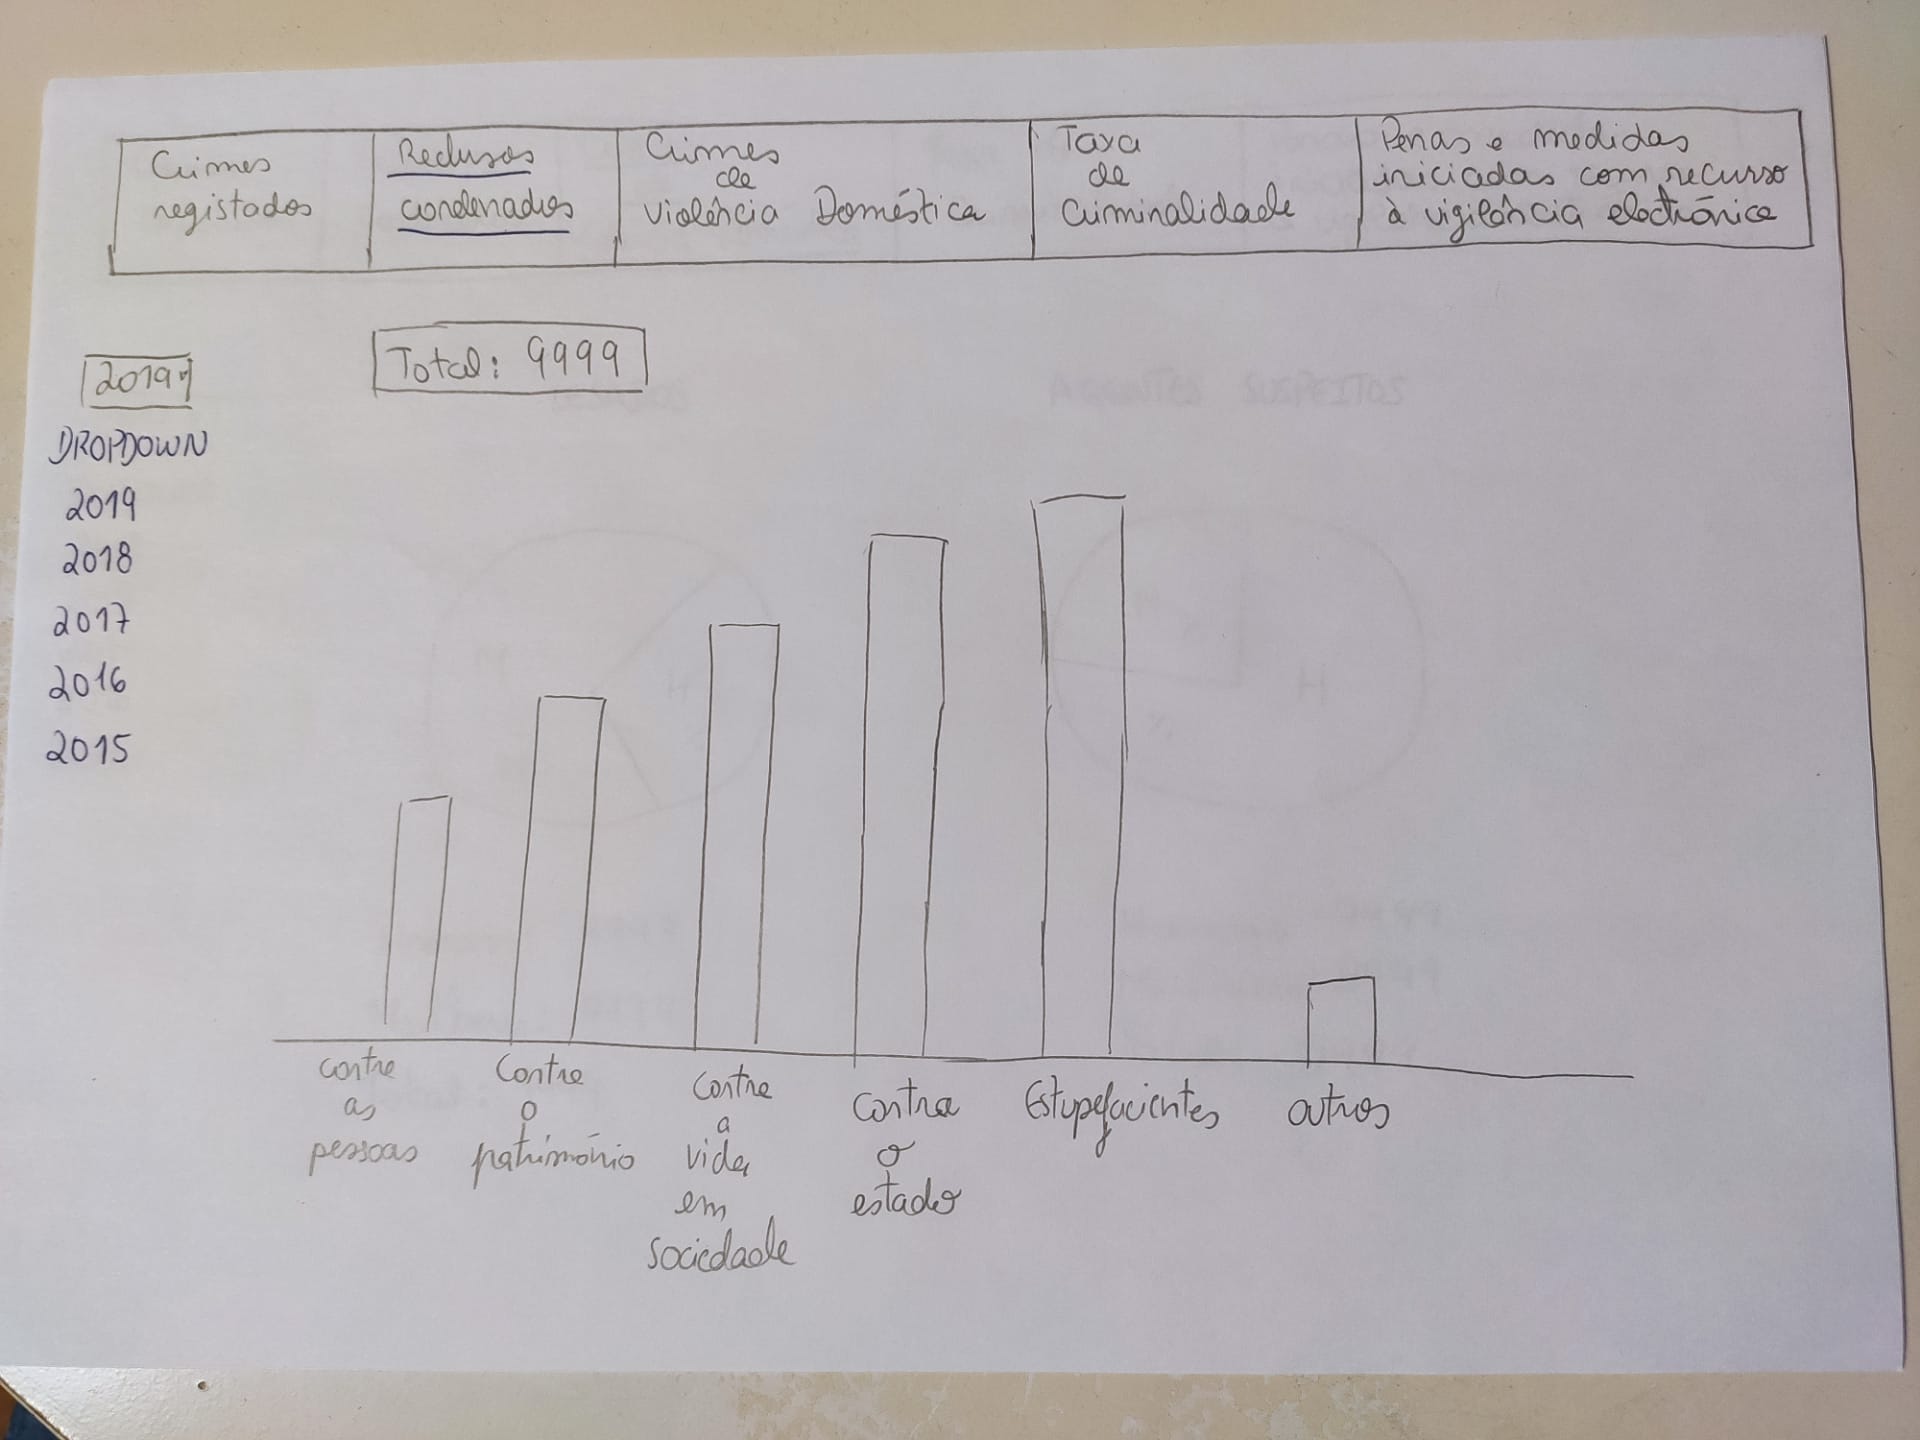 Crimes
registados
Reclusos
condenados
Crimes
de
violência Doméstica
Taxa
de
Criminalidade
Penas e medidas
iniciadas com recurso
à vigilância electrónica
2019
Total: 9999
DROPDOWN
2019
2018
2017
2016
2015
contra
as
pessoas
Contra
o
património
Contra
a
vida
em
sociedade
Contra
o
estado
Estupefacientes
outros
AGENTES SUSPEITOS